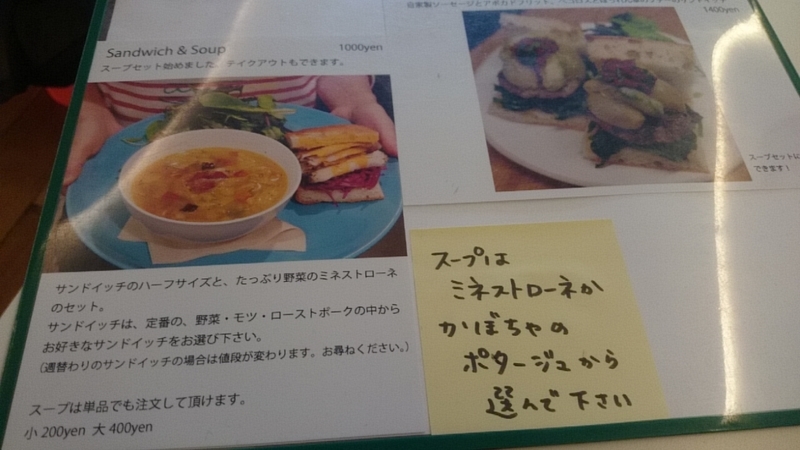 Sandwich & Soup 1000yen
スープセット始めました。テイクアウトもできます。
サンドイッチのハーフサイズと、たっぷり野菜のミネストローネ
のセット。
サンドイッチは、定番の、野菜・モツ・ローストポークの中から
お好きなサンドイッチをお選び下さい。
(週替わりのサンドイッチの場合は値段が変わります。お尋ねください。)
スープは単品でも注文して頂けます。
小 200yen 大 400yen
自家製ソーセージとアボカドフリット、
1400yen
スープセットに
できます!
スープは
ミネストローネか
かぼちゃの
ポタージュから
選んで下さい